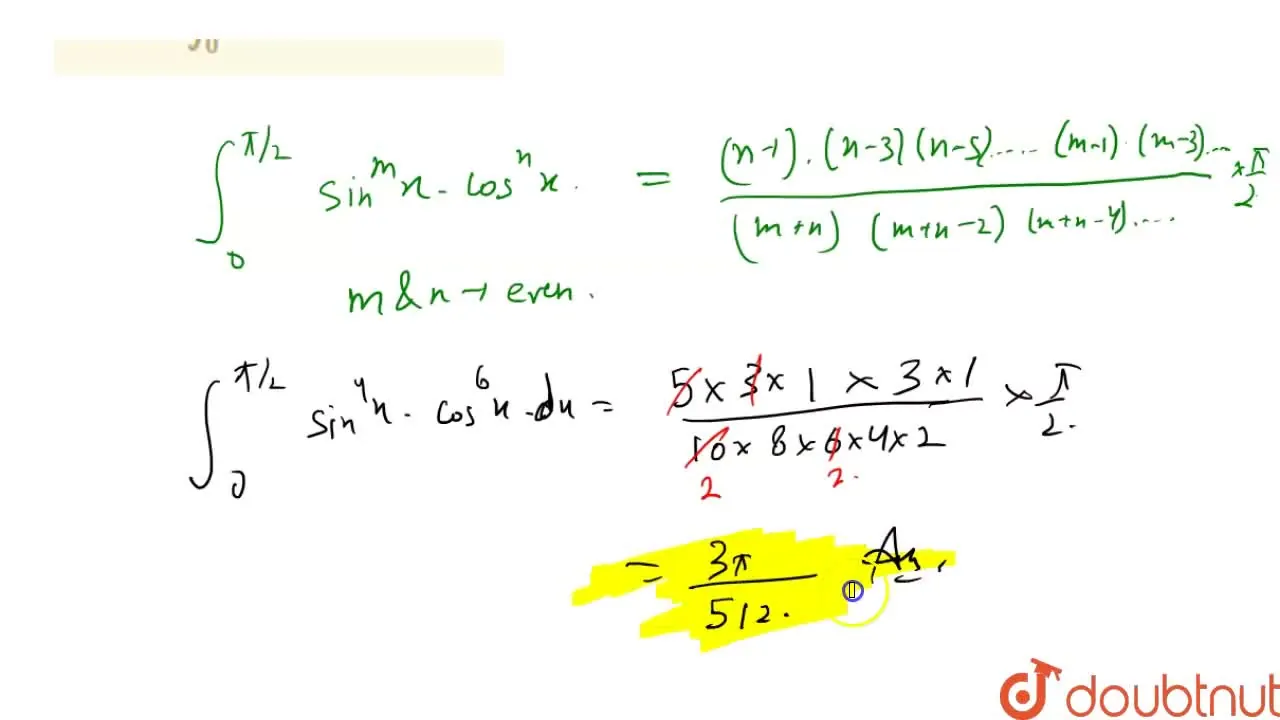 ∫₀^{π/2} sin^m x · cos^n x . = (n-1) . (n-3) (n-5) ..... (m-1) . (m-3) ... / (m+n) (m+n-2) (m+n-4) .... × π/2
m & n → even .
∫₀^{π/2} sin⁴x · cos⁶x · dx = 5 × 3 × 1 × 3 × 1 / 10 × 8 × 6 × 4 × 2 × π/2 .
2 2 .
= 3π / 512 . Ans ,
doubtnut